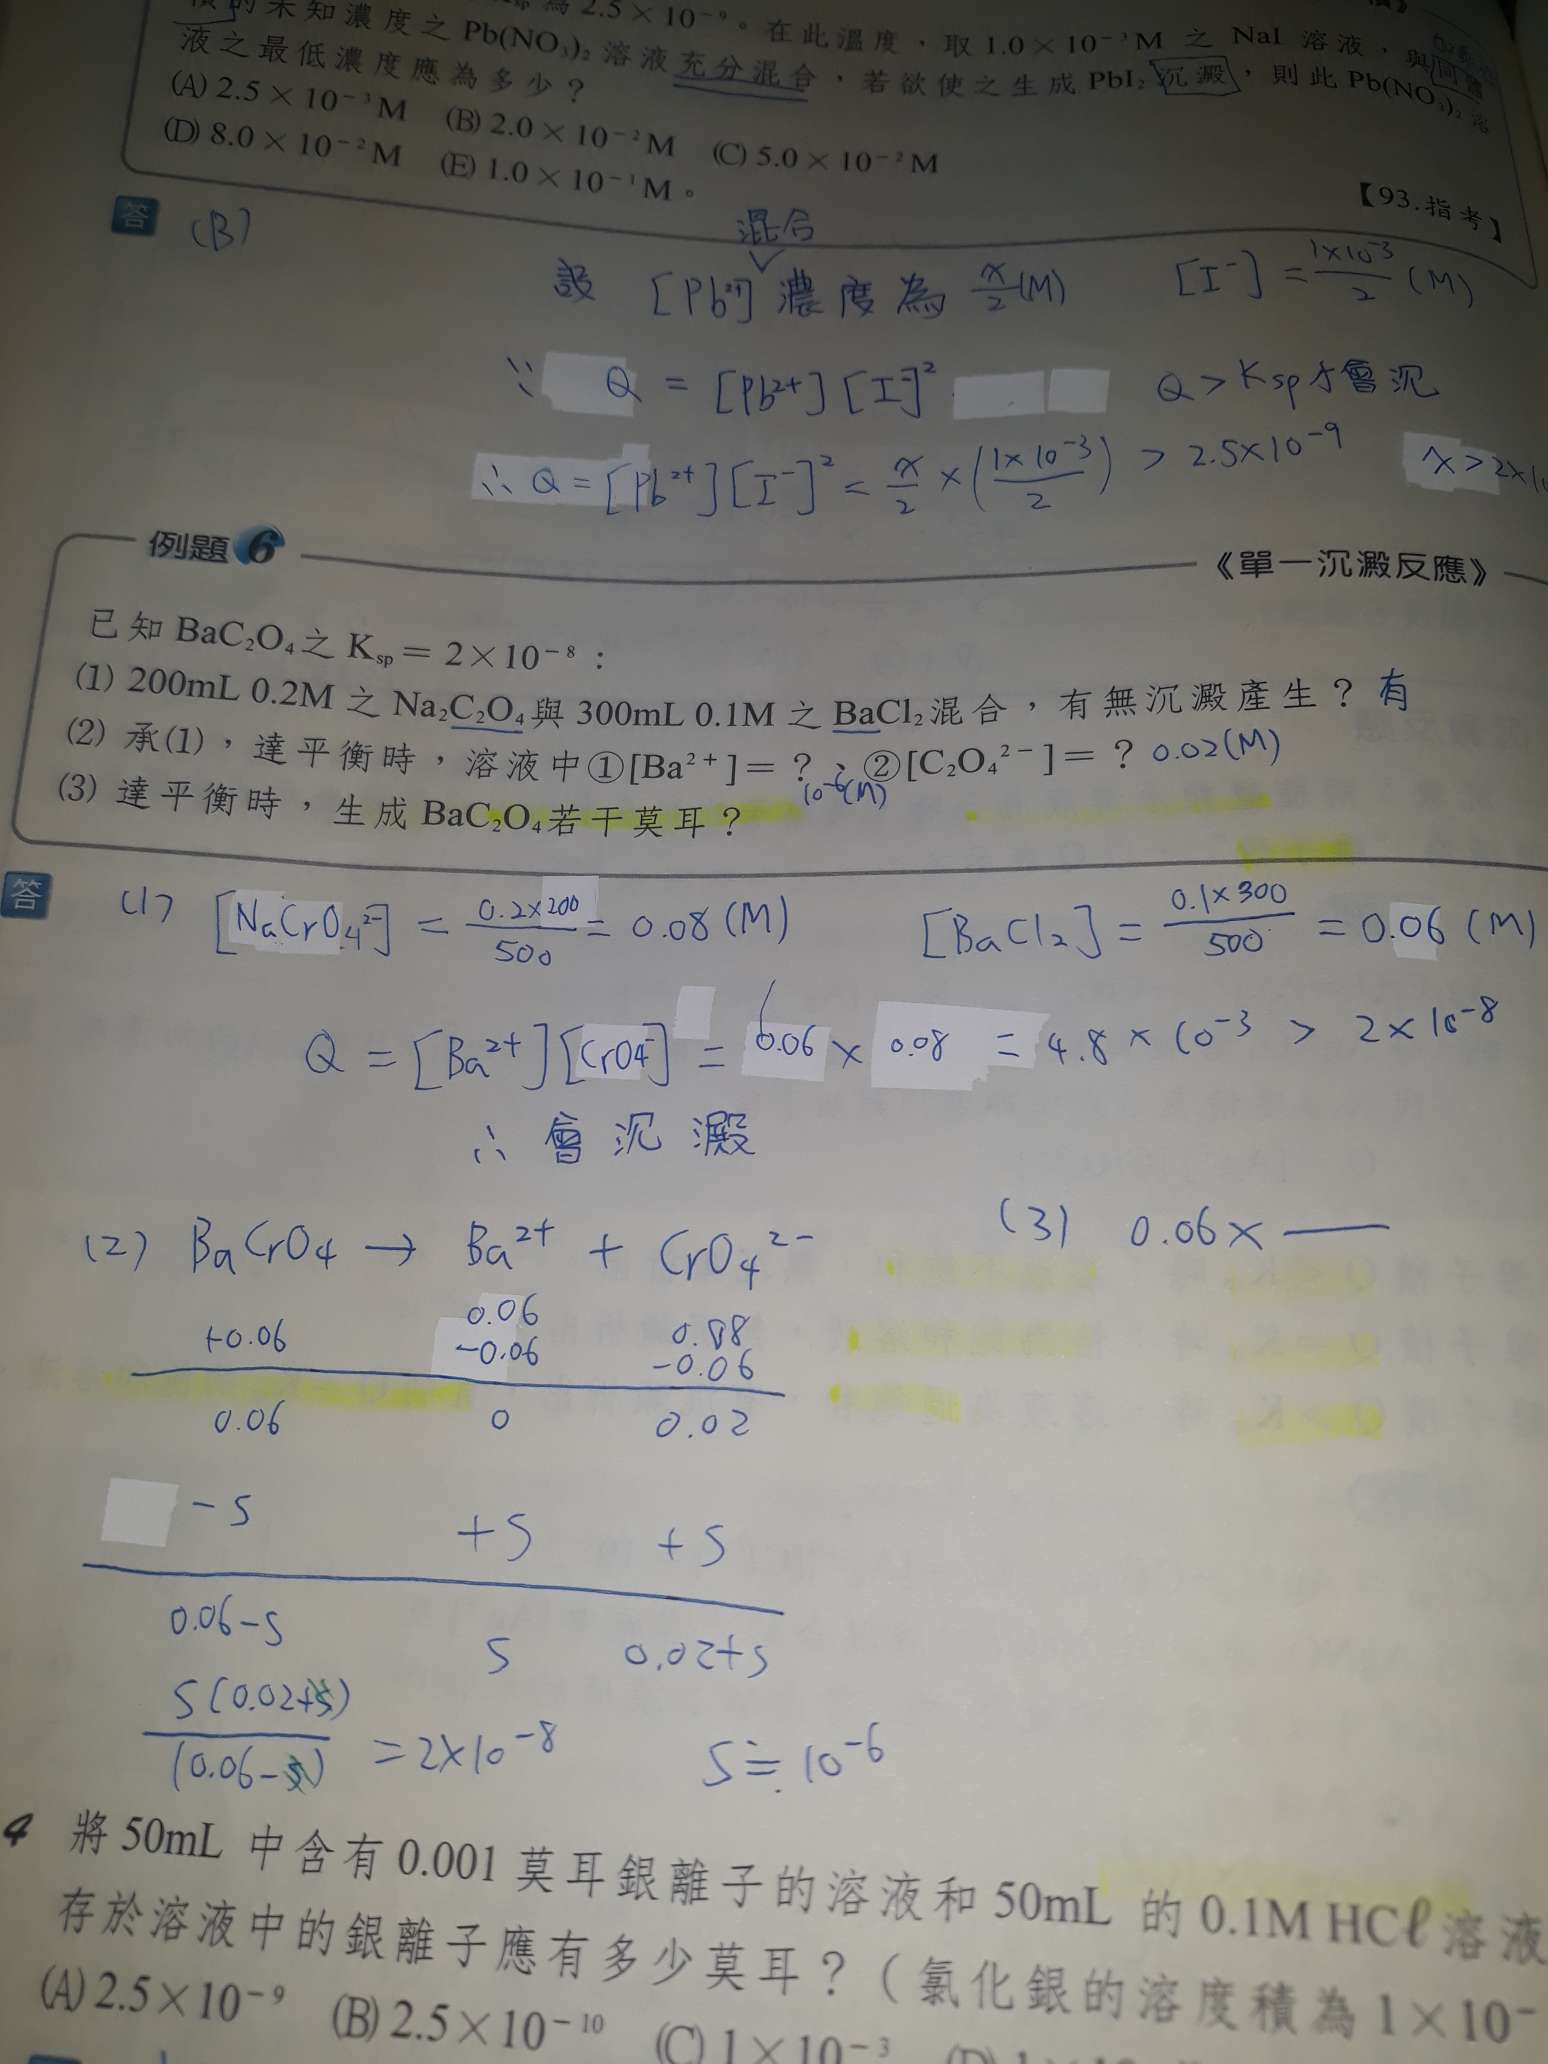 的未知濃度之Pb(NO₃)₂溶液充分混合，若欲使之生成PbI₂沉澱，則此Pb(NO₃)₂溶
為2.5×10⁻⁹。在此溫度，取1.0×10⁻³M之NaI溶液，與同體
液之最低濃度應為多少？
(A) 2.5×10⁻³M (B) 2.0×10⁻²M (C) 5.0×10⁻²M
(D) 8.0×10⁻²M (E) 1.0×10⁻¹M。
【93.指考】
答 (B)
混合
設 [Pb²⁺] 濃度為 x/2 (M) [I⁻] = 1×10⁻³/2 (M)
∵ Q = [Pb²⁺][I⁻]² Q > Ksp才會沉
∴ Q = [Pb²⁺][I⁻]² = x/2 × (1×10⁻³/2) > 2.5×10⁻⁹ x > 2×10
例題 6 《單一沉澱反應》
已知BaC₂O₄之Ksp = 2×10⁻⁸：
(1) 200mL 0.2M 之 Na₂C₂O₄與300mL 0.1M 之 BaCl₂混合，有無沉澱產生？ 有
(2) 承(1)，達平衡時，溶液中①[Ba²⁺] = ？、②[C₂O₄²⁻] = ？ 0.02(M)
10⁻⁶(M)
(3) 達平衡時，生成BaC₂O₄若干莫耳？
答 (1) [NaCrO₄²⁻] = 0.2×200/500 = 0.08 (M) [BaCl₂] = 0.1×300/500 = 0.06 (M)
Q = [Ba²⁺][CrO₄⁻] = 0.06 × 0.08 = 4.8 × 10⁻³ > 2×10⁻⁸
∴ 會沉澱
(2) BaCrO₄ → Ba²⁺ + CrO₄²⁻ (3) 0.06×
0.06 0.08
+0.06 -0.06 -0.06
0.06 0 0.02
-S +S +S
0.06-S S 0.02+S
S(0.02+S)/(0.06-S) = 2×10⁻⁸ S≒10⁻⁶
4 將50mL 中含有0.001莫耳銀離子的溶液和50mL 的0.1M HCℓ溶液
存於溶液中的銀離子應有多少莫耳？（氯化銀的溶度積為1×10⁻
(A) 2.5×10⁻⁹ (B) 2.5×10⁻¹⁰ (C) 1×10⁻³ (D)